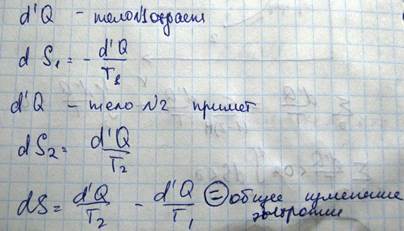 d'Q – тело №1 отдает
dS₁ = - d'Q/T₁
d'Q – тело №2 примет
dS₂ = d'Q/T₂
dS = d'Q/T₂ - d'Q/T₁ = общее изменение энтропии